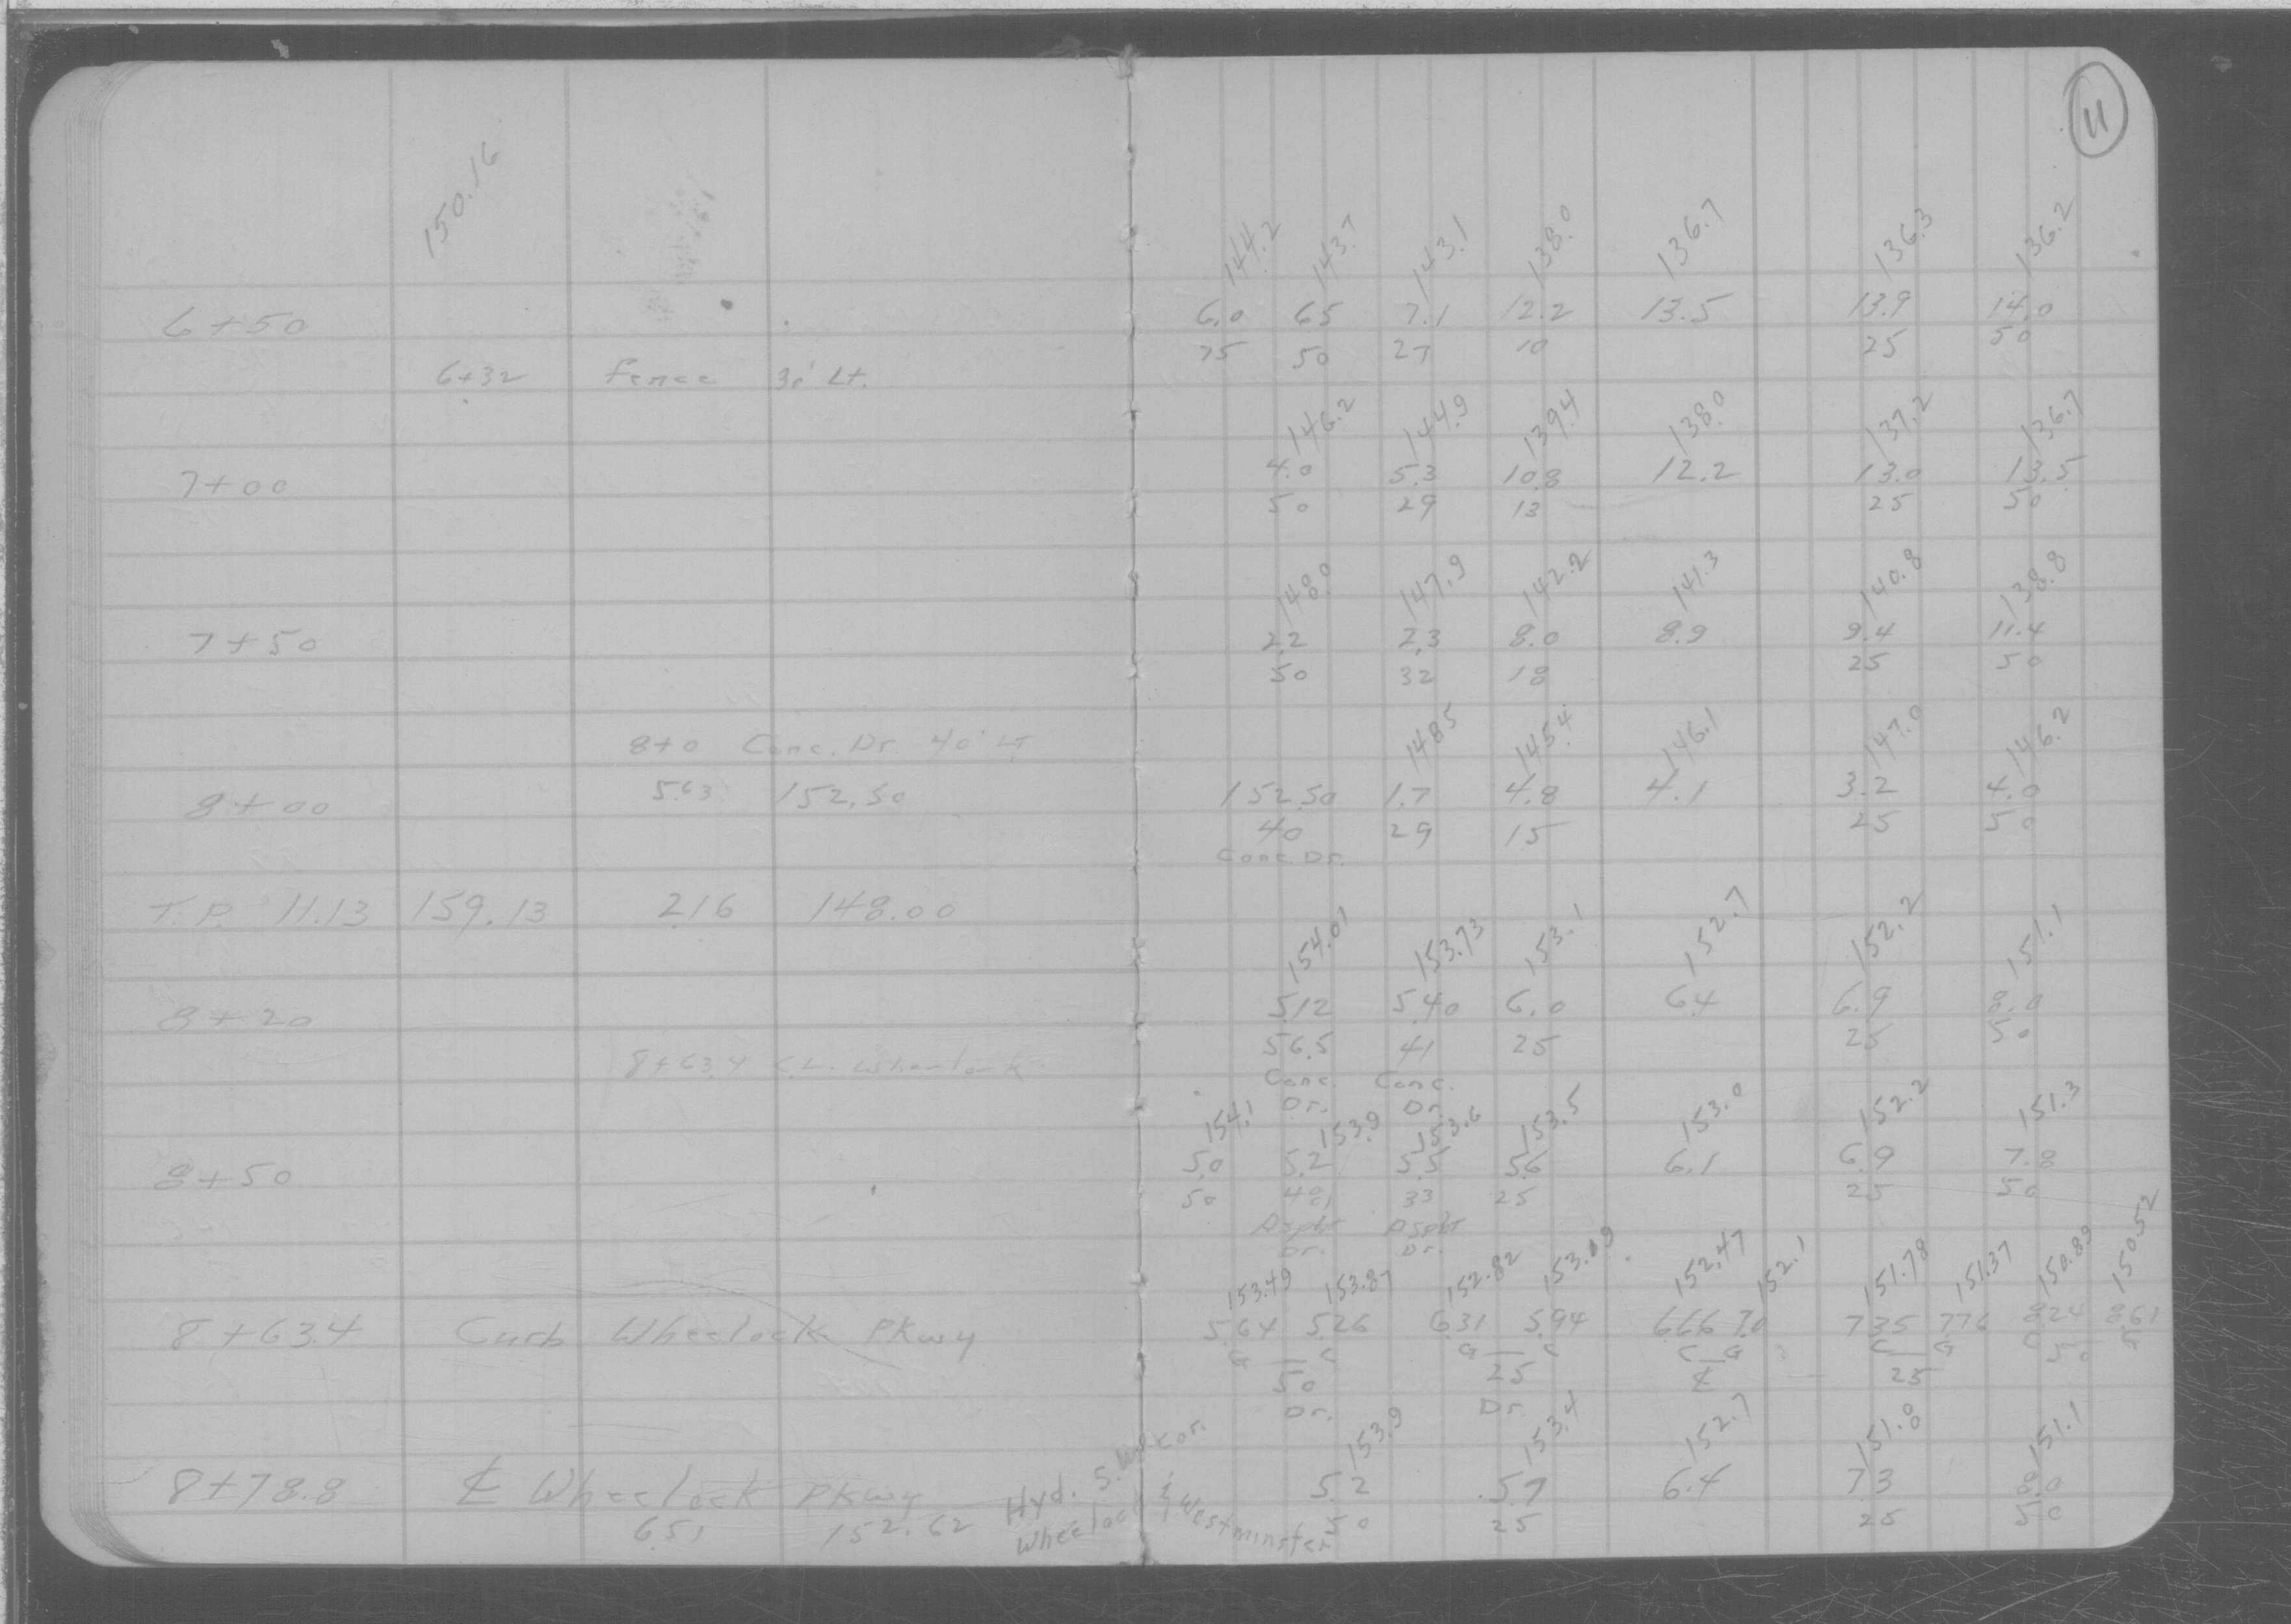 11
150.16
144.2 143.7 143.1 138.0 136.7 136.3 136.2
6+50 6.0 6.5 7.1 12.2 13.5 13.9 14.0
75 50 27 10 25 50
6+32 fence 30' Lt.
146.2 144.9 139.4 138.0 137.2 136.7
7+00 4.0 5.3 10.8 12.2 13.0 13.5
50 29 13 25 50
148.0 147.9 142.2 141.3 140.8 138.8
7+50 2.2 2.3 8.0 8.9 9.4 11.4
50 32 18 25 50
8+0 Conc. Dr. 40' LT
148.5 145.4 146.1 147.0 146.2
8+00 5.63 152.50 152.50 1.7 4.8 4.1 3.2 4.0
40 29 15 25 50
Conc. Dr.
T.P. 11.13 159.13 2.16 148.00
154.01 153.73 153.1 152.7 152.2 151.1
8+20 5.12 5.40 6.0 6.4 6.9 8.0
56.5 41 25 25 50
8+63.4 C.L. Wheelock
Conc. Conc.
Dr. Dr.
154.1 153.9 153.6 153.5 153.0 152.2 151.3
8+50 5.0 5.2 5.5 5.6 6.1 6.9 7.8
50 48 33 25 25 50
Asph Asph
Dr. Dr.
153.49 153.87 152.82 153.19 152.47 152.1 151.78 151.37 150.89 150.52
8+63.4 Curb Wheelock Pkwy 5.64 5.26 6.31 5.94 6.66 7.0 7.35 7.76 8.24 8.61
G C G C C G C G C G
50 25 ℄ 25 50
Dr. Dr.
153.9 153.4 152.7 151.8 151.1
8+78.8 ℄ Wheelock Pkwy 5.2 5.7 6.4 7.3 8.0
50 25 25 50
6.51 152.62 Hyd. S.W. cor. Wheelock & Westminster